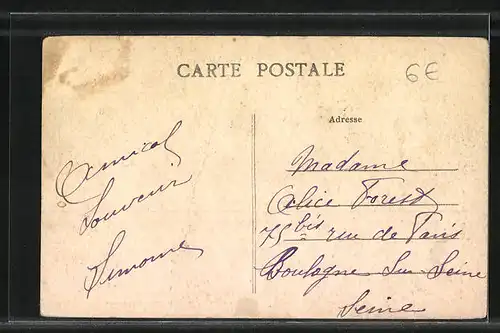 CARTE POSTALE
6€
Amical
Souvenir
Simone
Adresse
Madame
Alice Forest
75 bis rue de Paris
Boulogne Sur Seine
Seine